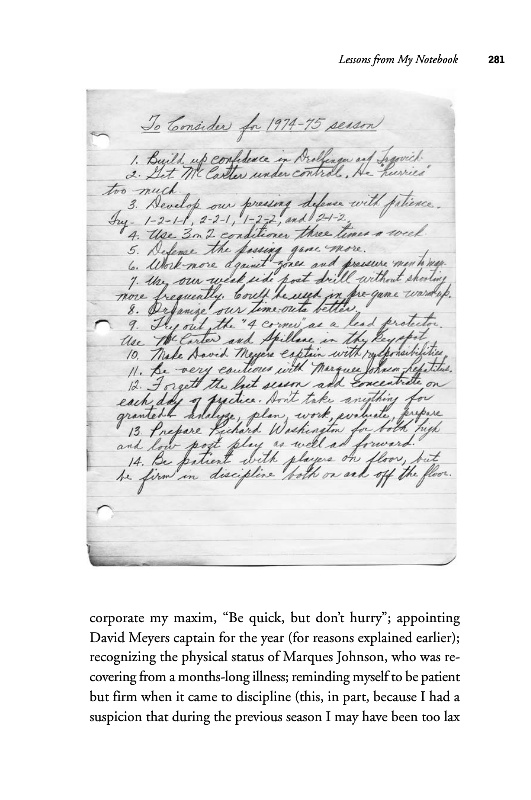 Lessons from My Notebook 281
To Consider for 1974-75 season
1. Build up confidence in Drollinger and Trgovich
2. Get McCarter under control. He "hurries"
too much
3. Develop our pressing defense with patience.
Try - 1-2-1-1, 2-2-1, 1-2-2, and 1-2-1-2.
4. Use 3 on 2 conditioner three times a week
5. Defense the passing game more.
6. Work more against zones and pressure man to man.
7. Use our weak side post drill without shooting
more frequently. Could be used in pre-game warm-up.
8. Organize our time-outs better.
9. Try out the "4 corner" as a lead protector.
Use McCarter and Spillane in the key spot
10. Make David Meyers captain with responsibilities.
11. Be very cautious with Marques Johnson - hepatitus.
12. Forget the last season and concentrate on
each day of practice. Don't take anything for
granted - analyze, plan, work, evaluate, prepare
13. Prepare Richard Washington for both high
and low post play as well as forward.
14. Be patient with players on floor, but
be firm in discipline both on and off the floor.
corporate my maxim, “Be quick, but don’t hurry”; appointing
David Meyers captain for the year (for reasons explained earlier);
recognizing the physical status of Marques Johnson, who was re-
covering from a months-long illness; reminding myself to be patient
but firm when it came to discipline (this, in part, because I had a
suspicion that during the previous season I may have been too lax